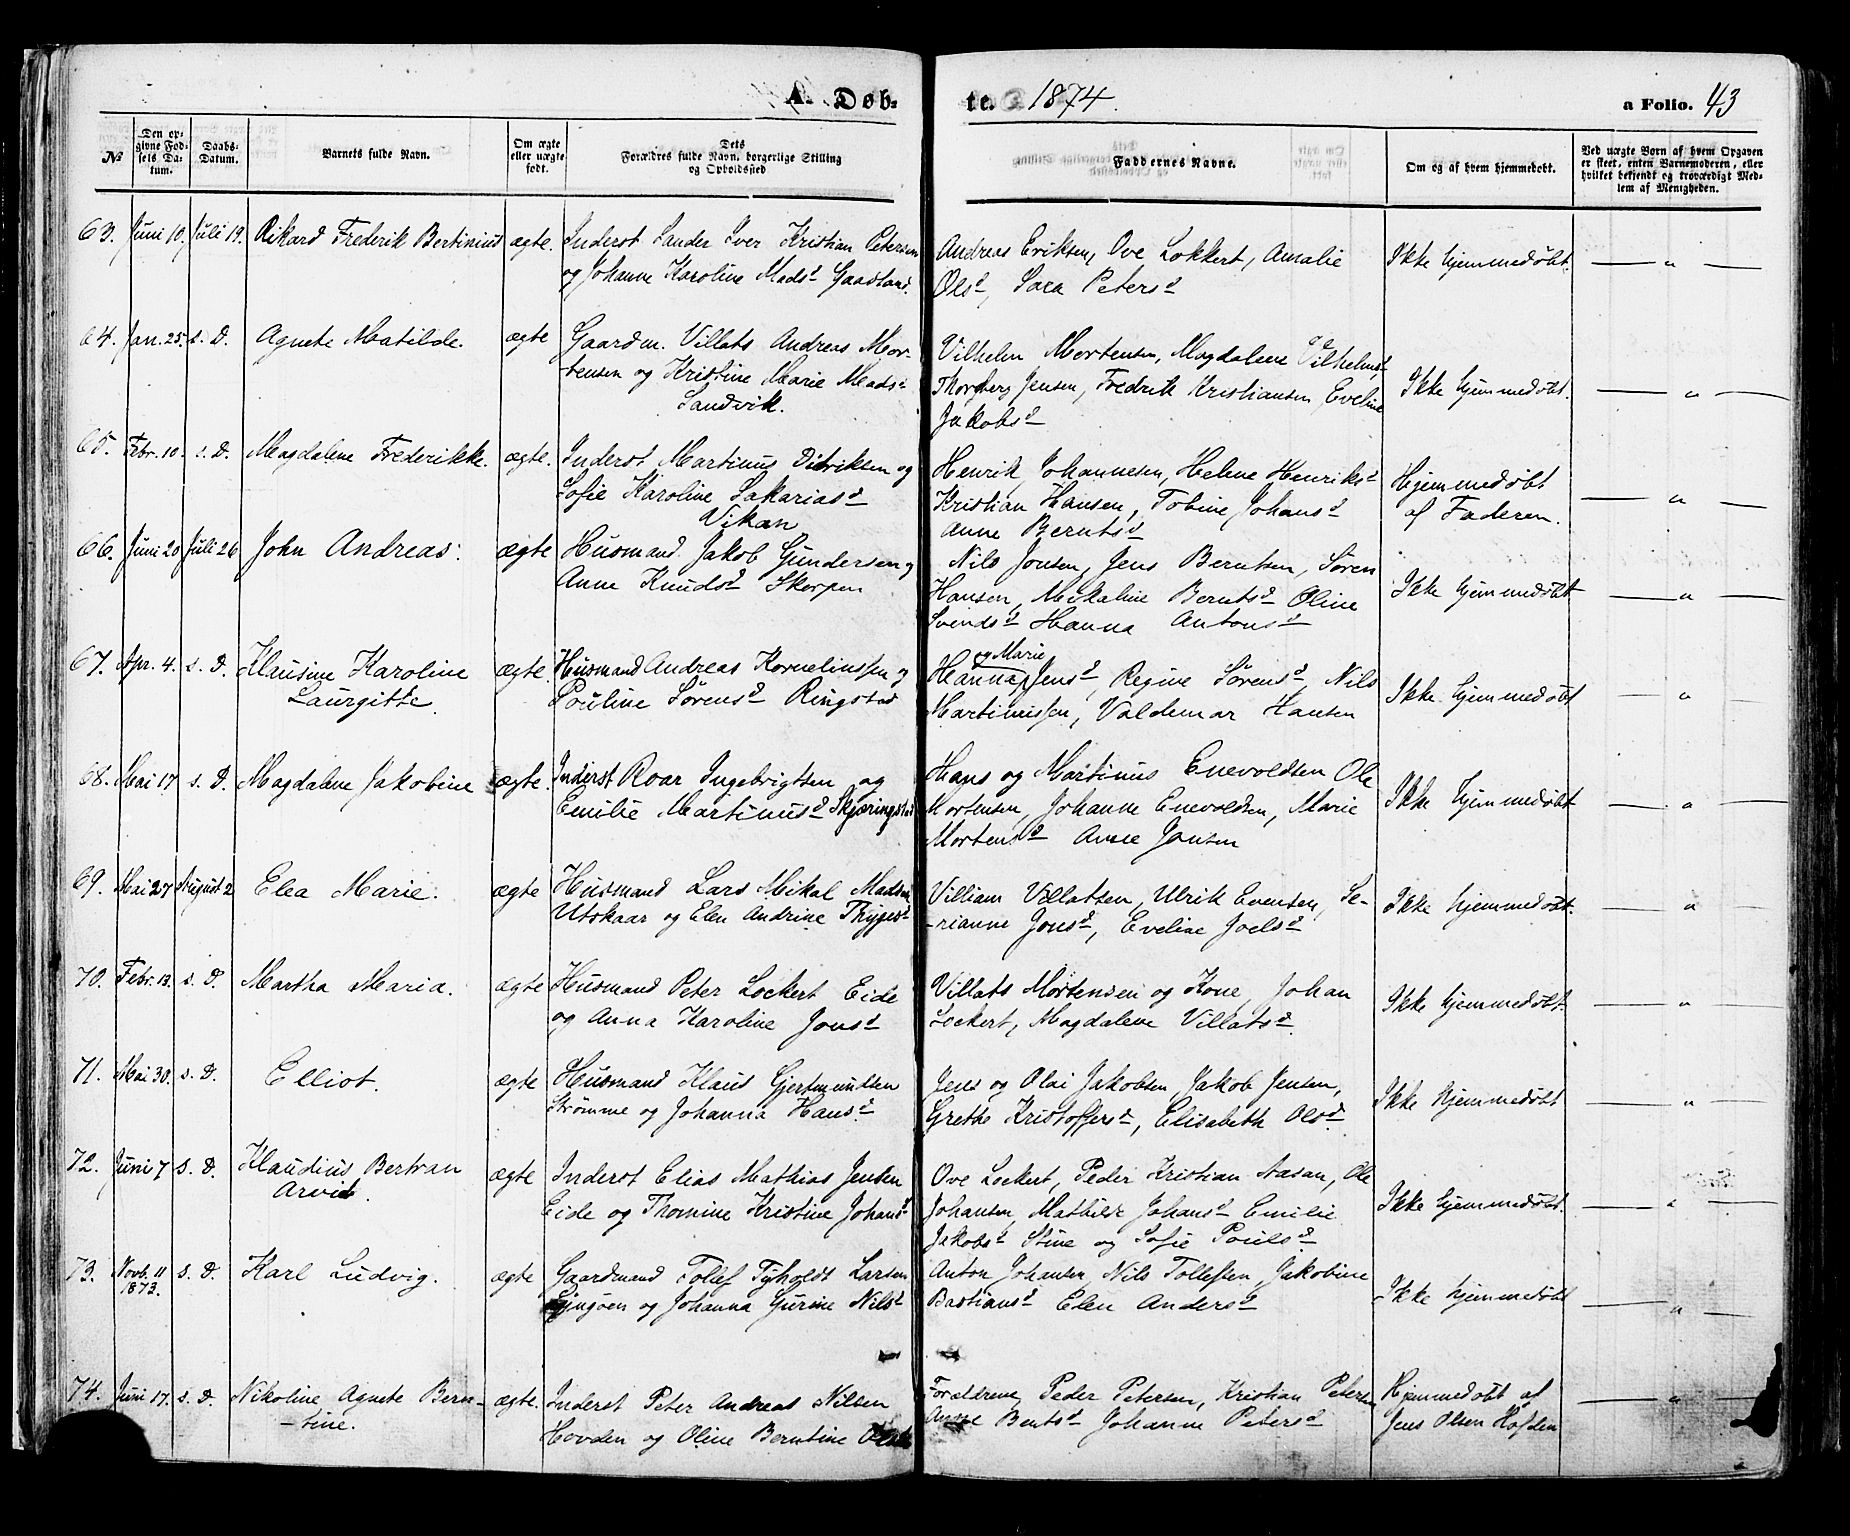 A. Døb-
te. 1874.
a Folio. 43
No
Den opgivne Fødsels Datum.
Daabs-Datum.
Barnets fulde Navn.
Om ægte eller uægte født.
Dets Forældres fulde Navn, borgerlige Stilling og Opholdssted
Faddernes Navne.
Om og af hvem hjemmedøbt.
Ved uægte Børn af hvem Opgaven er skeet, enten Barnemoderen, eller hvilket bekjendt og troværdigt Medlem af Menigheden.
63. Juni 10. Juli 19. Rikard Frederik Bertinius ægte. Inderst Sander Iver Kristian Petersen
og Johanne Karoline Madsd Gaasland.
Andreas Eriksen, Ove Lokkert, Amalie
Olsd, Sara Petersd
Ikke hjemmedøbt. — " —
64. Jan. 25. s. D. Agnete Matilde. ægte Gaardm. Villats Andreas Mor-
tensen og Kristine Marie Madsd
Sandvik.
Vilhelm Mortensen, Magdalene Vilhelmsd
Thorberg Jensen, Fredrik Kristiansen, Eveline
Jakobsd
Ikke hjemmedøbt. — " —
65. Febr. 10. s. D. Magdalene Frederikke. ægte. Inderst Martinus Didriksen og
Sofie Karoline Sakariasd
Vikan
Henrik Johannesen, Helene Henriksd
Kristian Hansen, Tobine Johansd
Anne Berntsd
Hjemmedøbt
af Faderen. — " —
66. Juni 20 Juli 26 John Andreas. ægte Husmand Jakob Gundersen og
Anne Knudsd Skorpen
Nils Jonsen, Jens Berntsen, Søren
Hansen, Mikaline Berntsd Oline
Svendsd Hanna Antonsd
Ikke hjemmedøbt — " —
67. Apr. 4. s. D. Klausine Karoline
Laurgitte. ægte. Husmand Andreas Korneliussen og
Pouline Sørensd Ringstad
og Marie
Hanna Jensd, Regine Sørensd, Nils
Martinussen, Valdemar Hansen
Ikke hjemmedøbt — " —
68. Mai 17 s. D. Magdalene Jakobine ægte. Inderst Roar Ingebrigtsen og
Emilie Martinusd Skjæringstad
Hans og Martinus Enevoldsen Ole
Mortensen, Johanne Enevoldsen, Marie
Mortensd Anne Jonsen
Ikke hjemmedøbt — " —
69. Mai 27 August 2 Elea Marie. ægte Husmand Lars Mikal Madsen
Utskaar og Elen Andrine Thygesd
Villiam Villatsen, Ulrik Evensen, Se-
-rianne Jonsd, Eveline Joelsd
Ikke hjemmedøbt. — " —
70. Febr. 13. s. D. Martha Maria. ægte Husmand Peter Lockert Eide
og Anna Karoline Jonsd
Villats Mortensen og Kone, Johan
Lockert, Magdalene Villatsd
Ikke hjemmedøbt. — " —
71. Mai 30. s. D. Elliot. ægte Husmand Klaus Gjertmundsen
Strømme og Johanna Hansd
Jens og Olai Jakobsen, Jakob Jensen,
Grethe Kristoffersd, Elisabeth Olsd.
Ikke hjemmedøbt — " —
72. Juni 7 s. D. Klaudius Bertran
Arvid. ægte Inderst Elias Mathias Jensen
Eide og Thomine Kristine Johansd
Ove Lockert, Peder Kristian Aasan, Ole
Johansen, Mathilde Johansd Emilie
Jakobsd Stine og Sofie Poulsd
Ikke hjemmedøbt. — " —
73. Novb. 11
1873. s. D. Karl Ludvig. ægte Gaardmand Tollef Tyholdt Larsen
og Johanna Gurine Nilsd
Anton Johansen, Nils Tollefsen, Jakobine
Bastiansd Elen Andersd
Ikke hjemmedøbt — " —
74. Juni 17. s. D. Nikoline Agnete Bern-
-tine. ægte. Inderst Peter Andreas Nilsen
Hovden og Oline Berntine
Forældrene, Peder Petersen, Kristian Petersen
Anne Bentsd Johanne Petersd
Hjemmedøbt af
Jens Olsen Hofden — " —